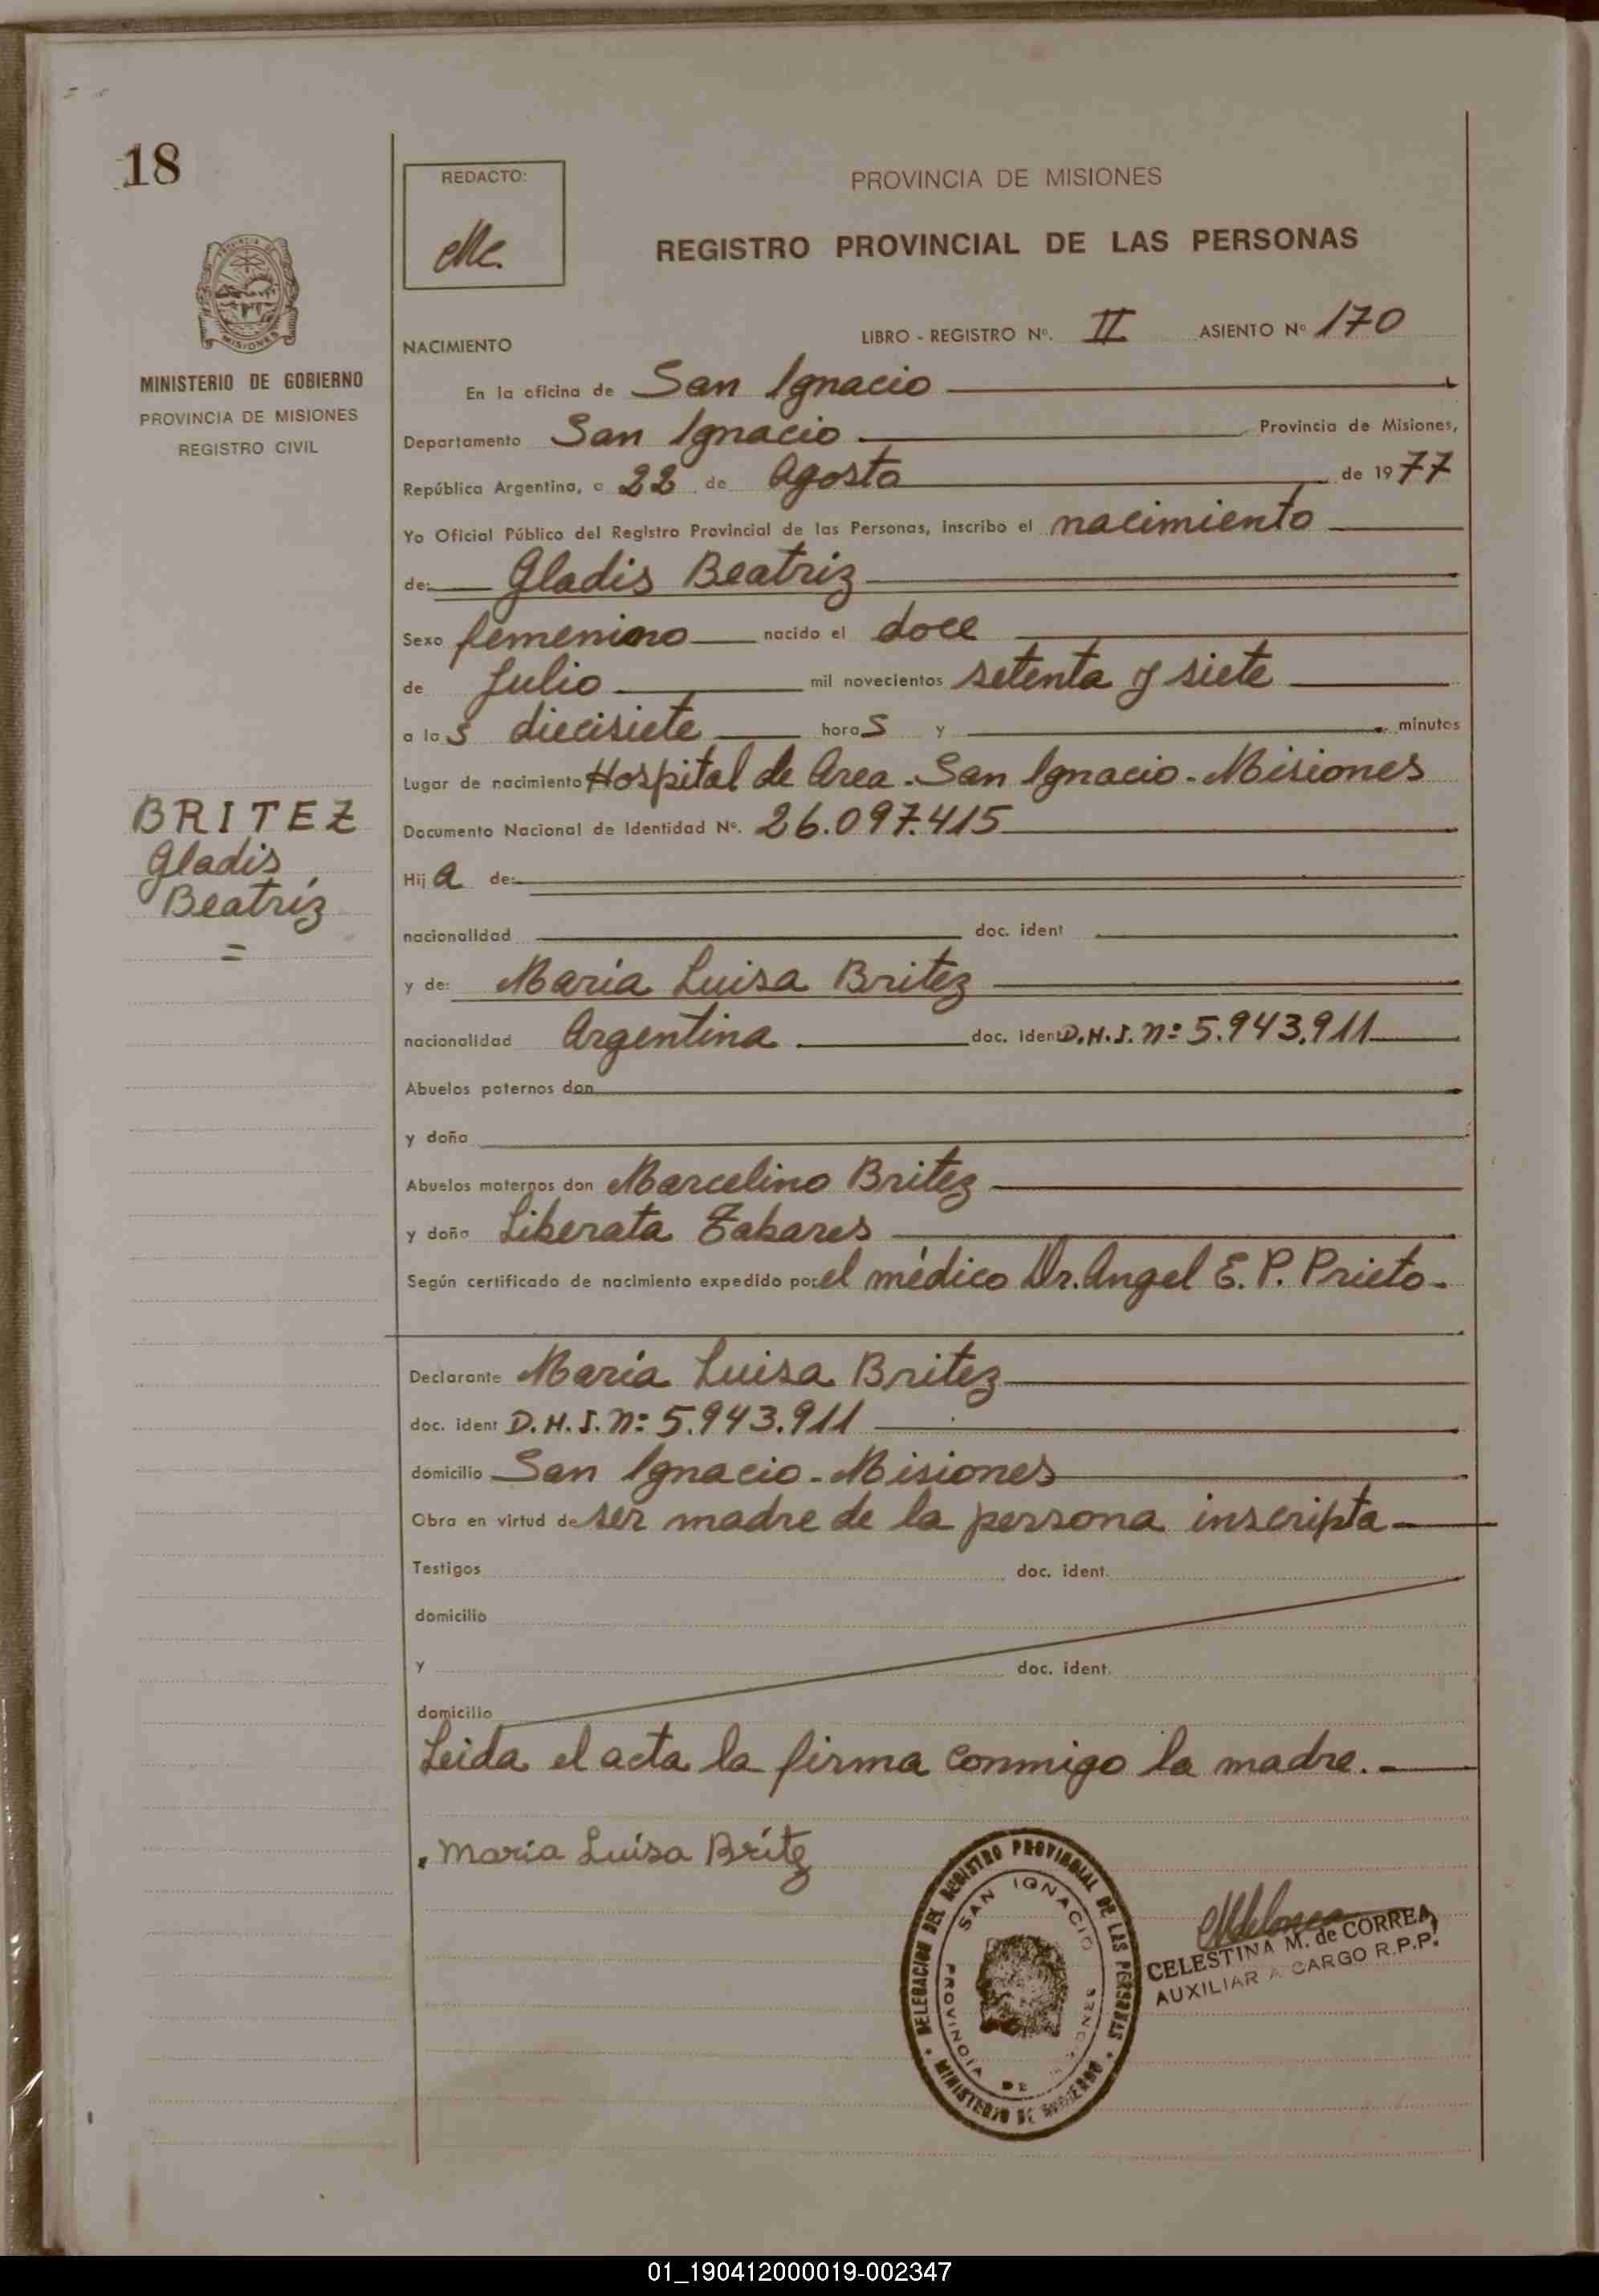 18
REDACTO:
PROVINCIA DE MISIONES
REGISTRO PROVINCIAL DE LAS PERSONAS
MISIONES
MINISTERIO DE GOBIERNO
PROVINCIA DE MISIONES
REGISTRO CIVIL
LIBRO - REGISTRO Nº. II ASIENTO Nº 170
NACIMIENTO
En la oficina de San Ignacio
Departamento San Ignacio Provincia de Misiones,
República Argentina, a 22 de Agosto de 1977
Yo Oficial Público del Registro Provincial de las Personas, inscribo el nacimiento
de: Gladis Beatriz
Sexo femenino nacido el doce
de Julio mil novecientos setenta y siete
a las diecisiete horas y minutos
Lugar de nacimiento Hospital de Area - San Ignacio - Misiones
Documento Nacional de Identidad Nº. 26.097.415
BRITEZ
Gladis
Beatriz
Hija de:
nacionalidad doc. ident
y de: Maria Luisa Britez
nacionalidad Argentina doc. ident D.N.I. nº 5.943.911
Abuelos paternos don
y doña
Abuelos maternos don Marcelino Britez
y doña Liberata Tabares
Según certificado de nacimiento expedido por: el médico Dr. Angel E. P. Prieto.
Declarante María Luisa Britez
doc. ident D.N.I. nº 5.943.911
domicilio San Ignacio - Misiones
Obra en virtud de ser madre de la persona inscripta
Testigos doc. ident.
domicilio
y doc. ident.
domicilio
Leida el acta la firma conmigo la madre.
Maria Luisa Britez
DELEGACION DEL REGISTRO PROVINCIAL DE LAS PERSONAS
MINISTERIO DE GOBIERNO
SAN IGNACIO
PROVINCIA DE MISIONES
CELESTINA M. de CORREA
AUXILIAR A CARGO R.P.P.
01_190412000019-002347